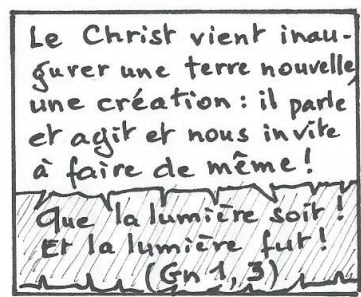 Le Christ vient inau-
gurer une terre nouvelle,
une création : il parle
et agit et nous invite
à faire de même !
Que la lumière soit !
Et la lumière fut !
(Gn 1, 3)